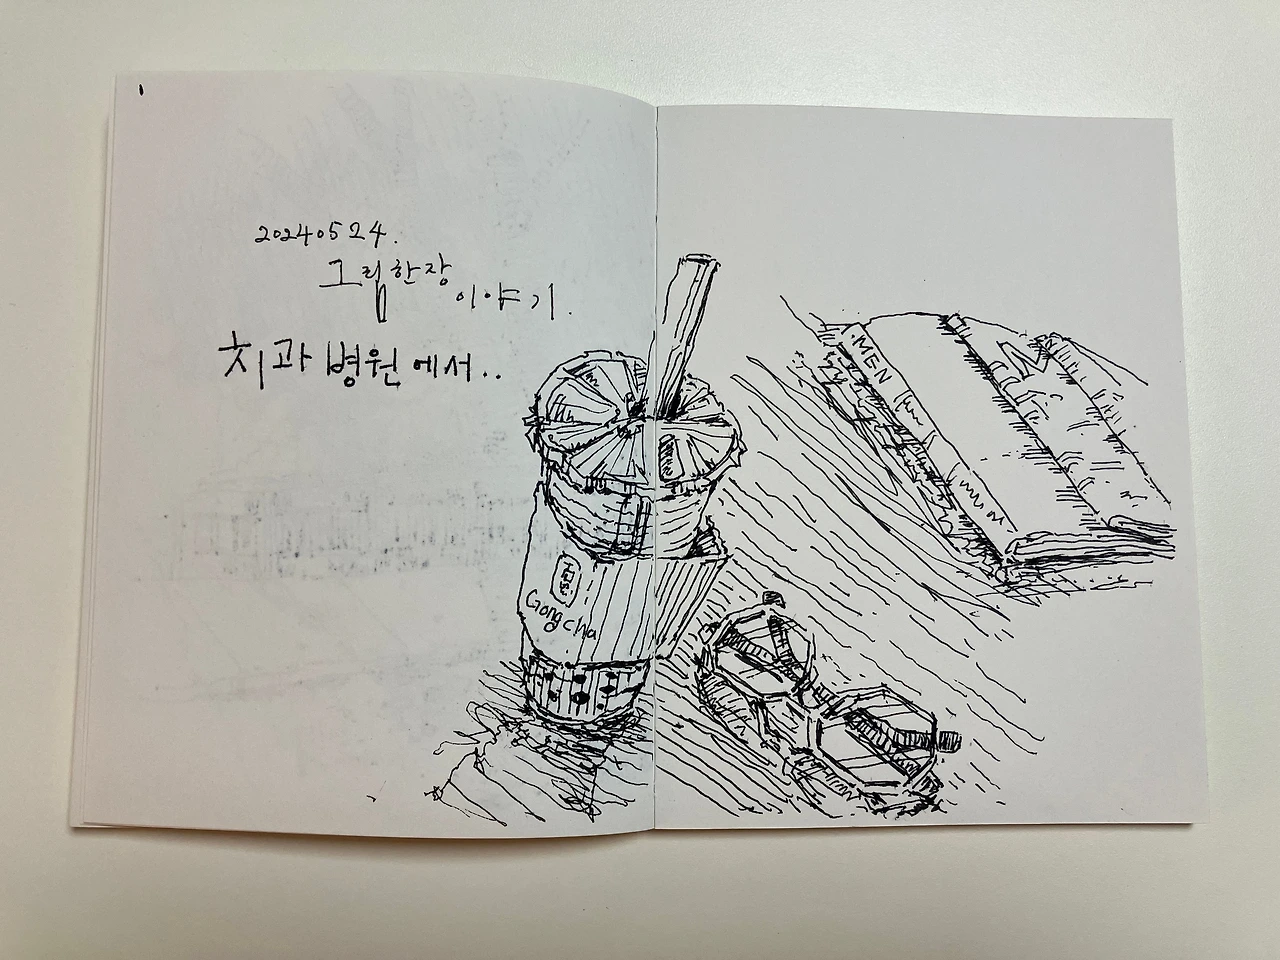 20240524.
그림한장
이야기.
치과병원에서..
Gong cha
MEN